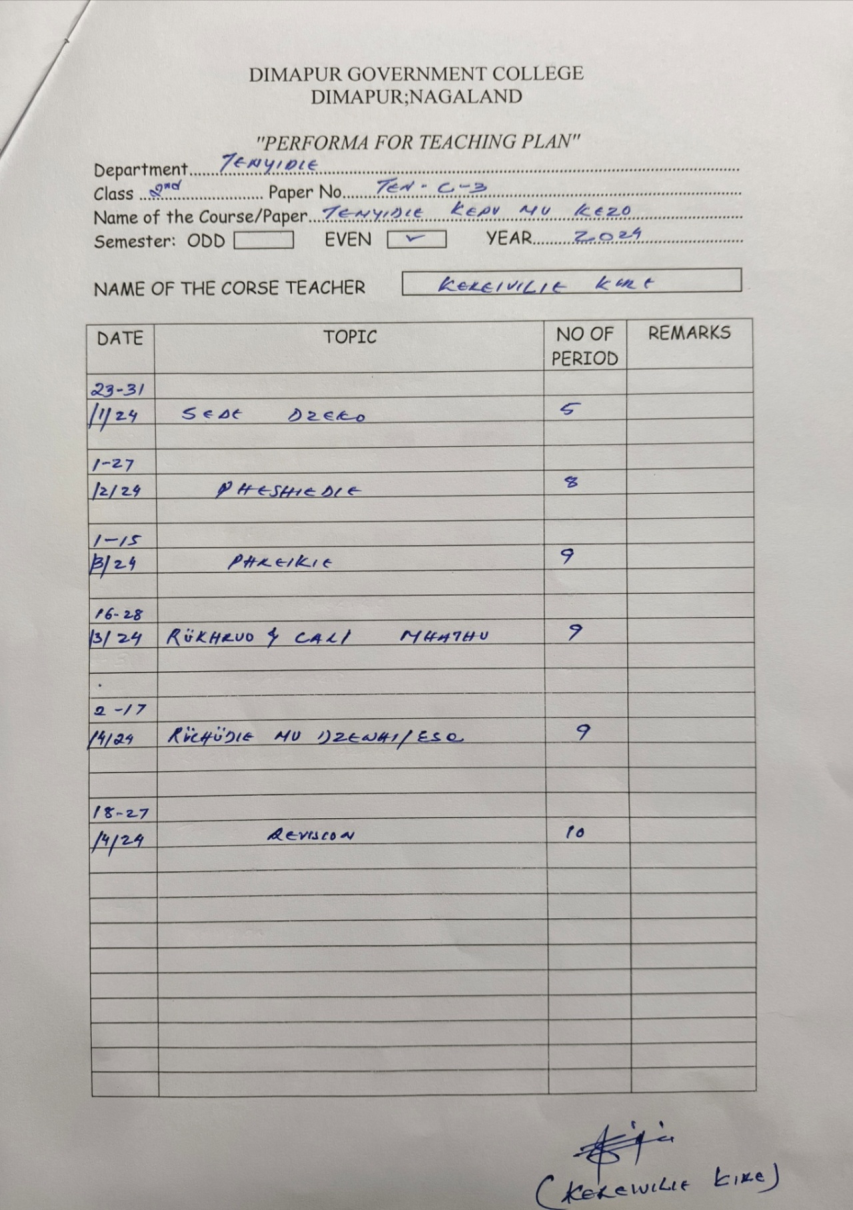 DIMAPUR GOVERNMENT COLLEGE
DIMAPUR;NAGALAND
"PERFORMA FOR TEACHING PLAN"
Department TENYIDIE
Class 2nd Paper No. TEN-C-3
Name of the Course/Paper TENYIDIE KEPU MU KEZO
Semester: ODD EVEN ✓ YEAR 2024
NAME OF THE CORSE TEACHER KEREIVILIE KIRE
DATE TOPIC NO OF PERIOD REMARKS
23-31
/1/24 SEDE DZEKO 5
1-27
/2/24 PHESHIEDIE 8
1-15
/3/24 PHREIKIE 9
16-28
/3/24 RÜKHRUO & CALI 9
2-17
/4/24 RÜCHÜDIE MU 9
18-27
/4/24 REVISION 10
(KEREIVILIE KIRE)